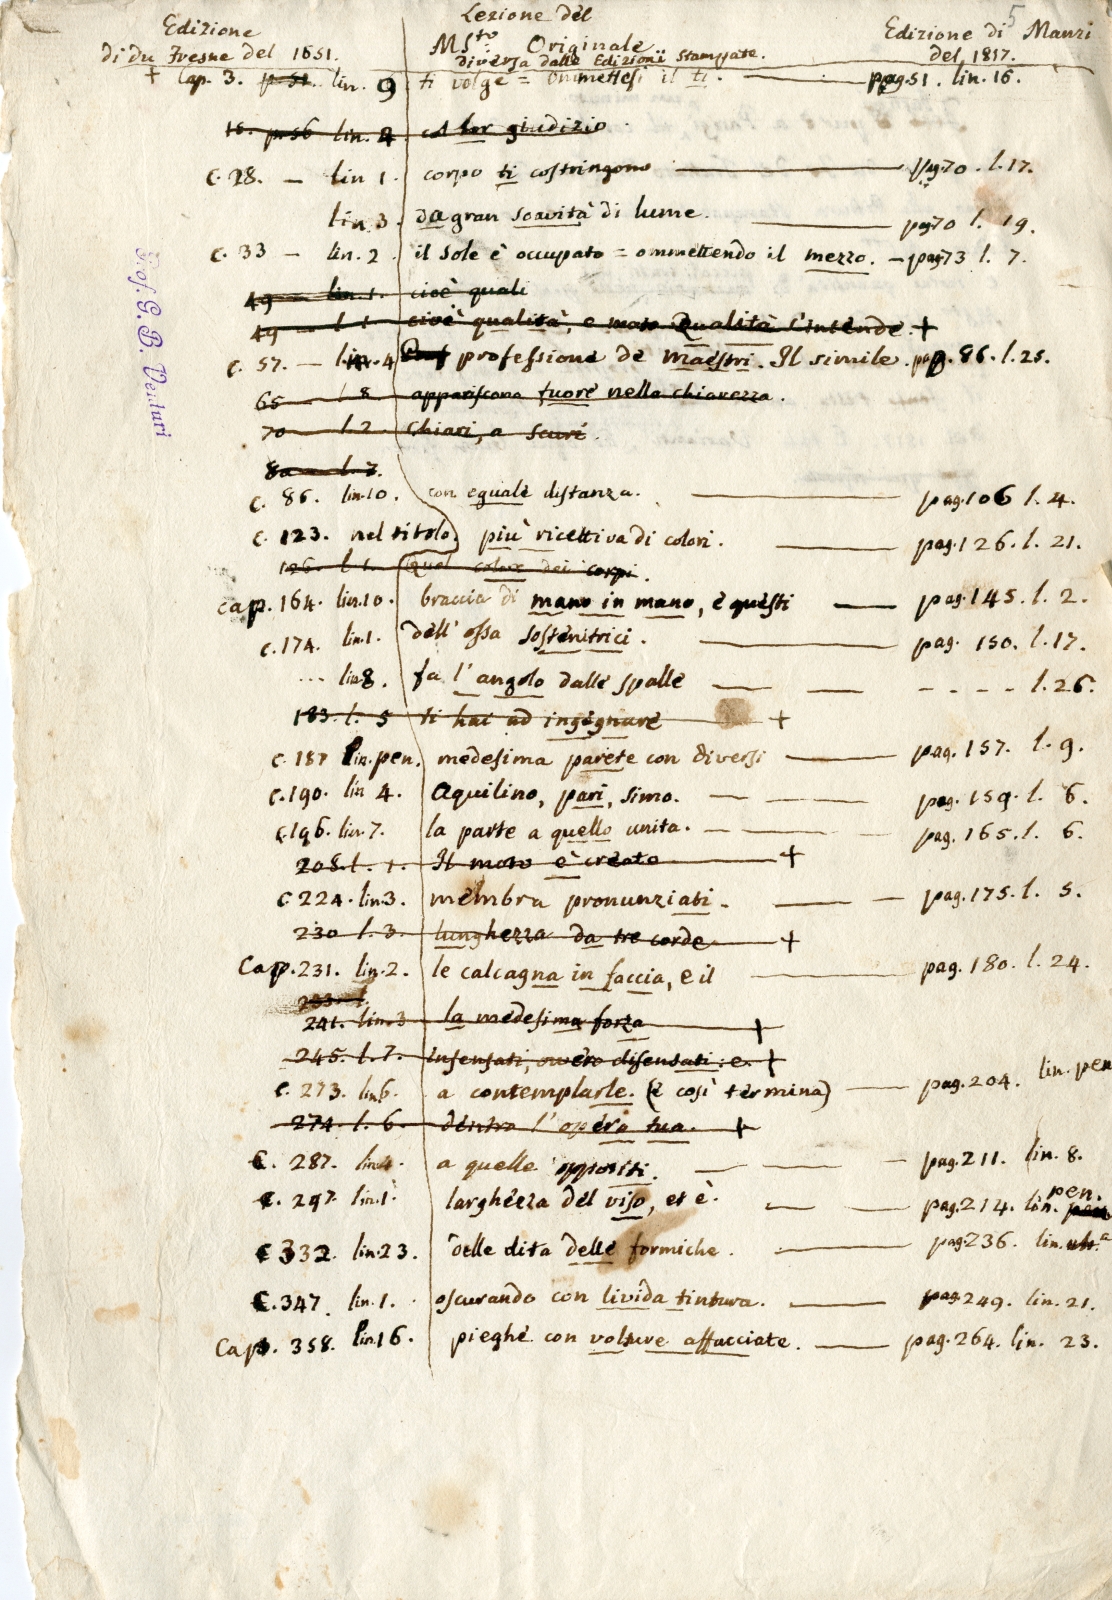 5
Edizione di du Fresne del 1651.
Lezione del MSto Originale diversa dalle Edizioni Stampate.
Edizione di Manzi del 1817.
+ Cap. 3. p. 51. lin. 9 ti volge = Ommettesi il ti. pag. 51. lin. 16.
15. p. 56 lin. 4 col lor giudizio.
c. 28. — lin 1. corpo ti costringono — pag 70. l. 17.
lin. 3. da gran soavità di lume. pag 70 l. 19.
c. 33 — lin. 2 il Sole è occupato = ommettendo il mezzo. — pag 73 l. 7.
49 — lin. 1. cioè quali
49 — l. 1 cioè qualità, e moto Qualità s'intende. +
c. 57. — lin. 4 professione de maestri. Il simile. pag. 86. l. 25.
65 — l. 8 appariscono fuore nella chiarezza.
70 — l. 2 Chiari, a scuri.
80 — l. 7.
c. 86. lin. 10. con eguale distanza. — pag. 106 l. 4.
c. 123. nel titolo. più ricettiva di colori. — pag. 126. l. 21.
126. l. 1. Quel colore dei corpi.
cap. 164. lin. 10. braccia di mano in mano, e questi — pag. 145. l. 2.
c. 174. lin. 1. dell' ossa sostenitrici. — pag. 150. l. 17.
... lin. 8. fa l'angolo dalle spalle — — - - - - l. 26.
183. l. 5 ti hai ad ingegnare — +
c. 187 lin. pen. medesima parete con diversi — pag. 157. l. 9.
c. 190. lin 4. Aquilino, pari, simo. — — — pag. 159. l. 6.
c. 196. lin. 7. la parte a quello unita. — — — pag. 165. l. 6.
208. l. 1. Il moto è creato — +
c. 224. lin. 3. membra pronunziati. — — — pag. 175. l. 5.
230 l. 3. lunghezza da tre corde — +
Cap. 231. lin. 2. le calcagna in faccia, e il — pag. 180. l. 24.
233. l.
241. lin. 3 la medesima forza — +
245. l. 7. insensati, ovvero disensati: e. +
c. 273. lin 6. a contemplarle. (e così termina) — pag. 204. lin. pen
274. l. 6. dentro l'opera tua. +
c. 287. lin. 4. a quelle oppositi. — — — pag. 211. lin. 8.
c. 297. lin. 1. larghezza del viso, et è. — — pag. 214. lin. pen.
c. 332. lin. 23. delle dita delle formiche. — pag. 236. lin. ulta.
c. 347 lin. 1. oscurando con livida tintura. — pag. 249. lin. 21.
Cap. 358. lin. 16. pieghe con volture affacciate. — pag. 264. lin. 23.
Prof. G. B. Venturi